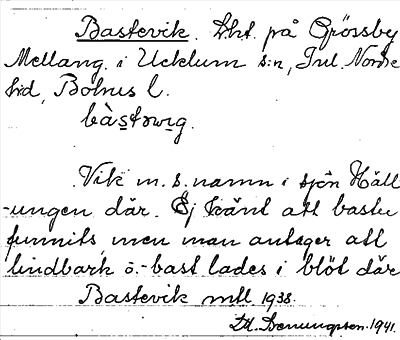 Bastevik. Lht. på Grössby
Mellang. i Ucklum s:n, Inl. Nordre
hd, Bohus l.
bàstəwɩg.
Vik m. s. namn i sjön Häll
-ungen där. Ej känt att bastu
funnits, men man antager att
lindbark ö.-bast lades i blöt där
Bastevik mtl 1938.
1941.